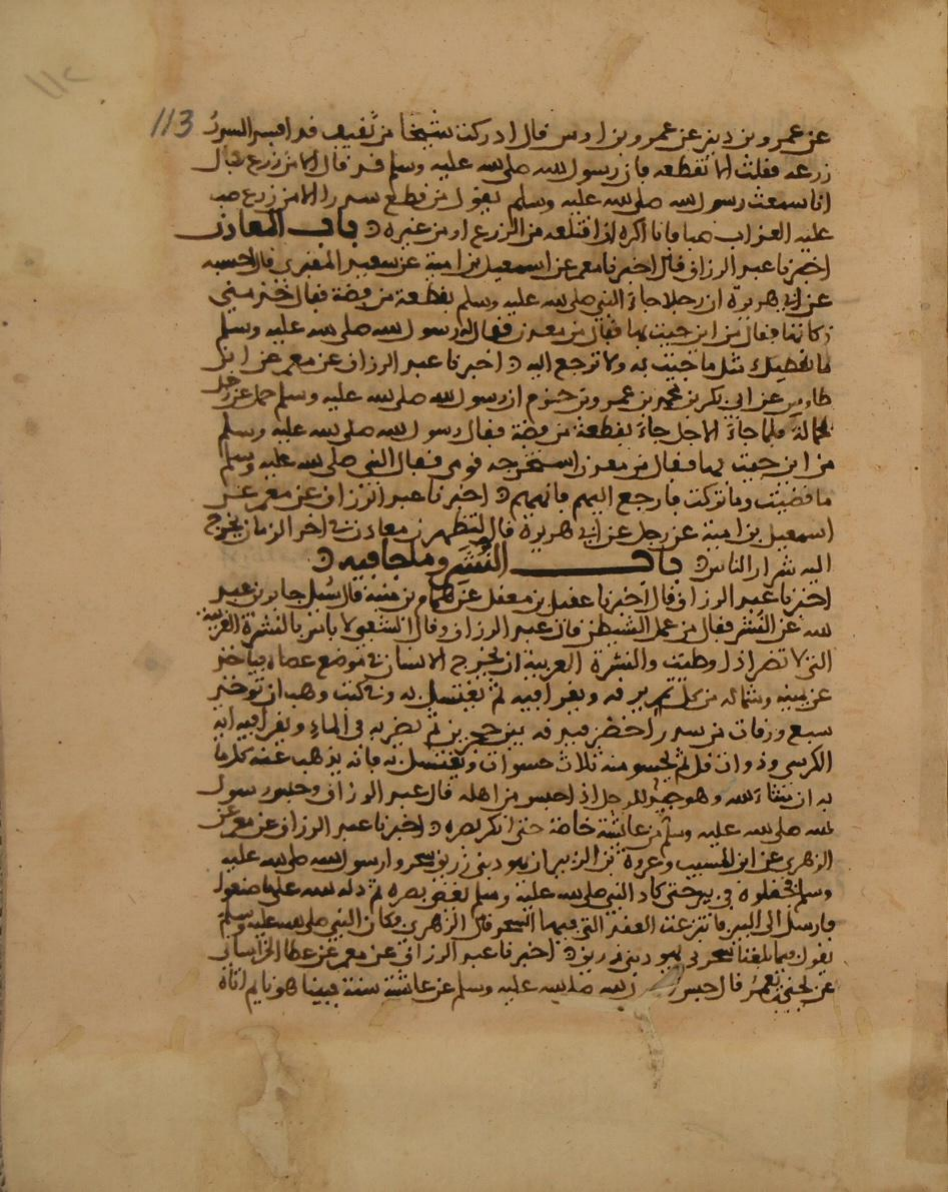 113
عن عمرو بن دينر عن عمرو بن اوس قال ادركت شيخا من ثقيف قد افسد السدر
زرعه فقلت الا تقطعه فان رسول الله صلى الله عليه وسلم قد قال الا من زرع قال
انا سمعت رسول الله صلى الله عليه وسلم يقول من قطع سدرا الا من زرع صب
عليه العذاب صبا فانا اكره ان اقتلعه من الزرع او من غيره باب المعادن
اخبرنا عبد الرزاق قال اخبرنا معمر عن اسمعيل بن امية عن سعيد المقبري قال احسبه
عن ابي هريرة ان رجلا جاء النبي صلى الله عليه وسلم بقطعة من فضة فقال خذ مني
زكاتها فقال من اين جيت بها فقال من معدن فقال له رسول الله صلى الله عليه وسلم
ما نعطيك مثل ما جيت به ولا ترجع اليه اخبرنا عبد الرزاق عن معمر عن ابن
طاوس عن ابي بكر بن محمد بن عمرو بن حزم ان رسول الله صلى الله عليه وسلم حمل عن رجل
بحمالة فلما جاء الاجل جاء بقطعة من فضة فقال رسول الله صلى الله عليه وسلم
من اين جيت بها فقال من معدن استخرجه قومي فقال النبي صلى الله عليه وسلم
ما قضيت وما تركت فارجع اليهم فانههم اخبرنا عبد الرزاق عن معمر عن
اسمعيل بن امية عن رجل عن ابي هريرة قال لتظهرن معادن في اخر الزمان يخرج
اليه شرار الناس باب النشر وما جا فيه
اخبرنا عبد الرزاق قال اخبرنا عقيل بن معقل عن همام بن منبه قال سئل جابر بن عبد
لله عن النشر فقال من عمل الشيطن قال عبد الرزاق وقال الشعبي لا باس بالنشرة العربية
التي لا تضر اذا وطيت والنشرة العربية ان يخرج الانسان في موضع عضاه فياخذ
عن يمينه وشماله من كل ثم يدقه ويقرا فيه ثم يغتسل به وفي كتب وهب ان توخذ
سبع ورقات من سدر اخضر فيدقه بين حجرين ثم يضربه في الماء ويقرا فيه اية
الكرسي وذوات قل ثم يحسو منه ثلاث حسوات ويغتسل به فانه يذهب عنه كل ما
به ان شاء الله وهو جيد للرجل اذا حبس من اهله قال عبد الرزاق وحبس رسول
لله صلى الله عليه وسلم عن عائشة خاصة حتى انكر بصره اخبرنا عبد الرزاق عن معمر عن
الزهري عن ابن المسيب وعروة بن الزبير ان يهود بني زريق سحروا رسول الله صلى الله عليه
وسلم فجعلوه في بير حتى كاد النبي صلى الله عليه وسلم يغض بصره ثم دله الله على ما صنعوا
فارسل الى البير فانتزعت العقد التي فيها السحر قال الزهري فكان النبي صلى الله عليه وسلم
يقول فيما بلغنا سحرني يهود بني زريق اخبرنا عبد الرزاق عن معمر عن عطا الخراساني
عن يحيى بن يعمر قال حبس رسول الله صلى الله عليه وسلم عن عائشة سنة فبينا هو نايم اتاه